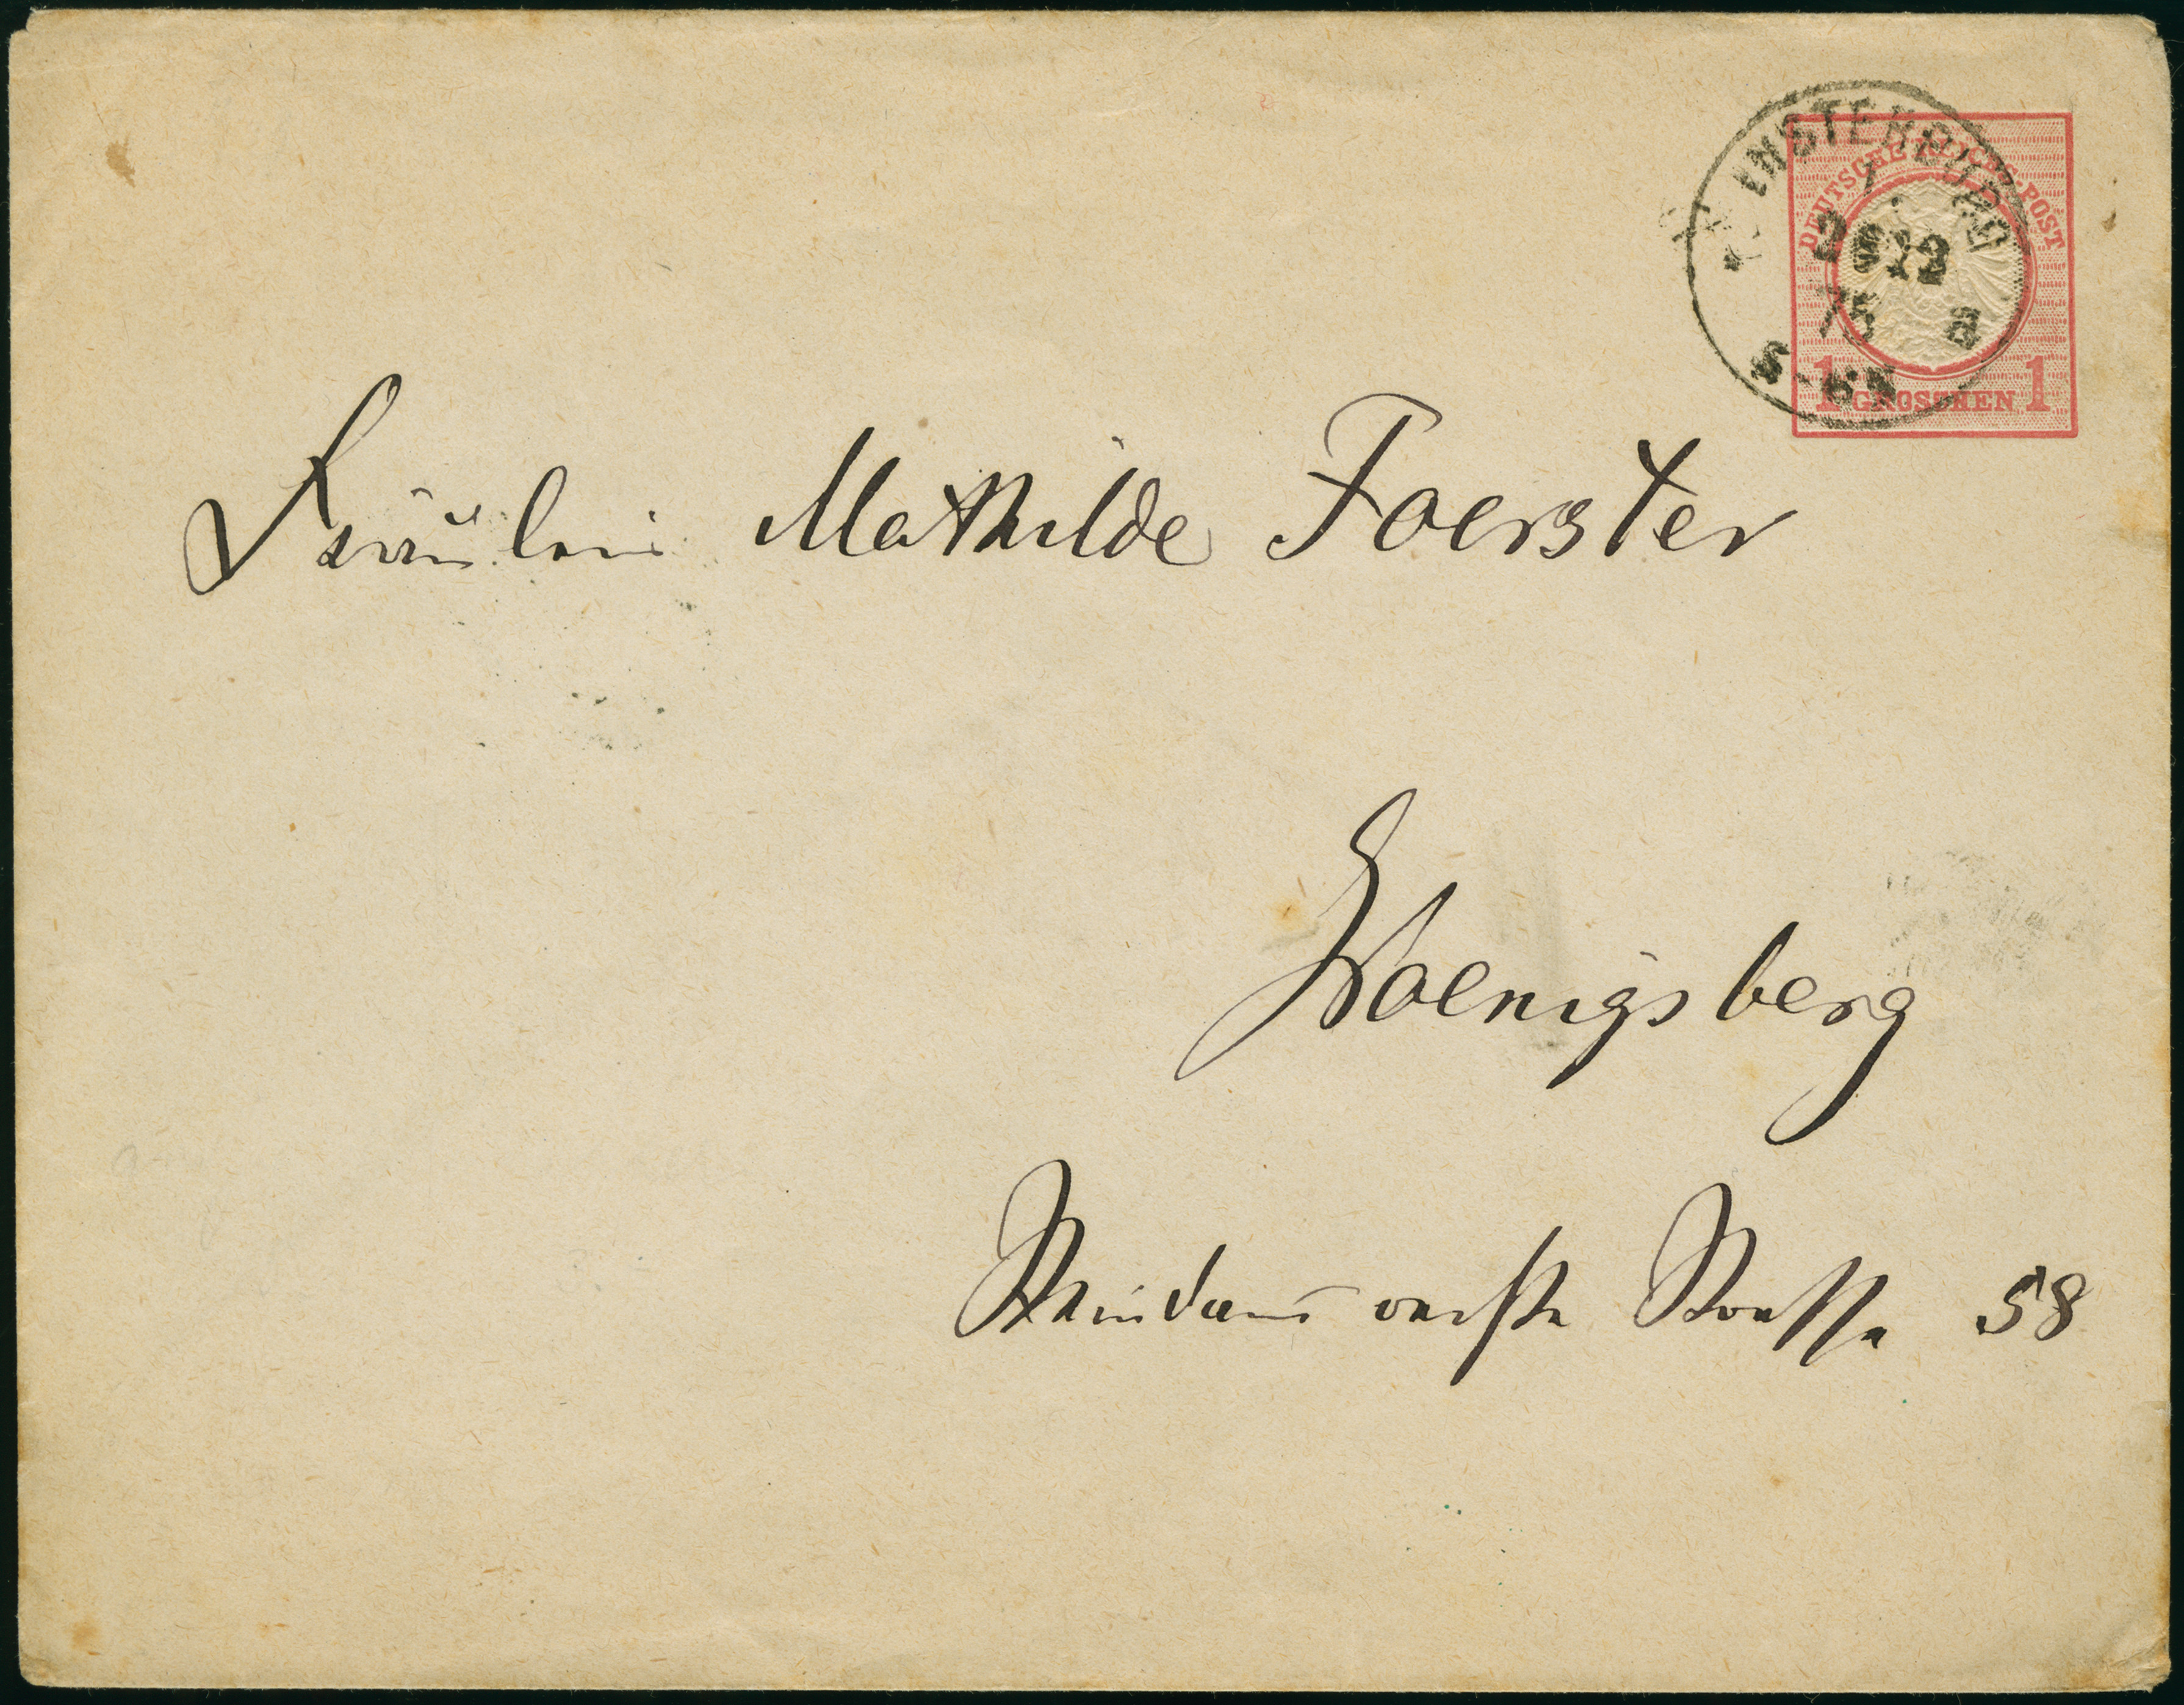 INSTERBURG
DEUTSCHE REICHS-POST
12
75 a
1 GROSCHEN 1
Fräulein Mathilde Foerster
Koenigsberg
Strasse 58